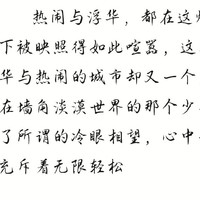 热闹与浮华，都在这
下被映照得如此喧嚣，这
华与热闹的城市却又一个
在墙角淡漠世界的那个少
了所谓的冷眼相望，心中
充斥着无限轻松